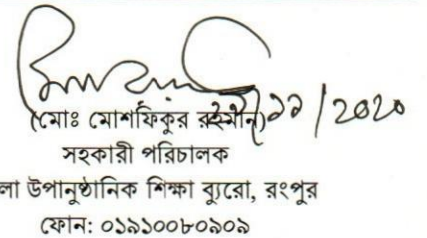 /১১/২০২০
(মোঃ মোশফিকুর রহমান)
সহকারী পরিচালক
লা উপানুষ্ঠানিক শিক্ষা ব্যুরো, রংপুর
ফোন: ০১৯১০০৮০৯০৯